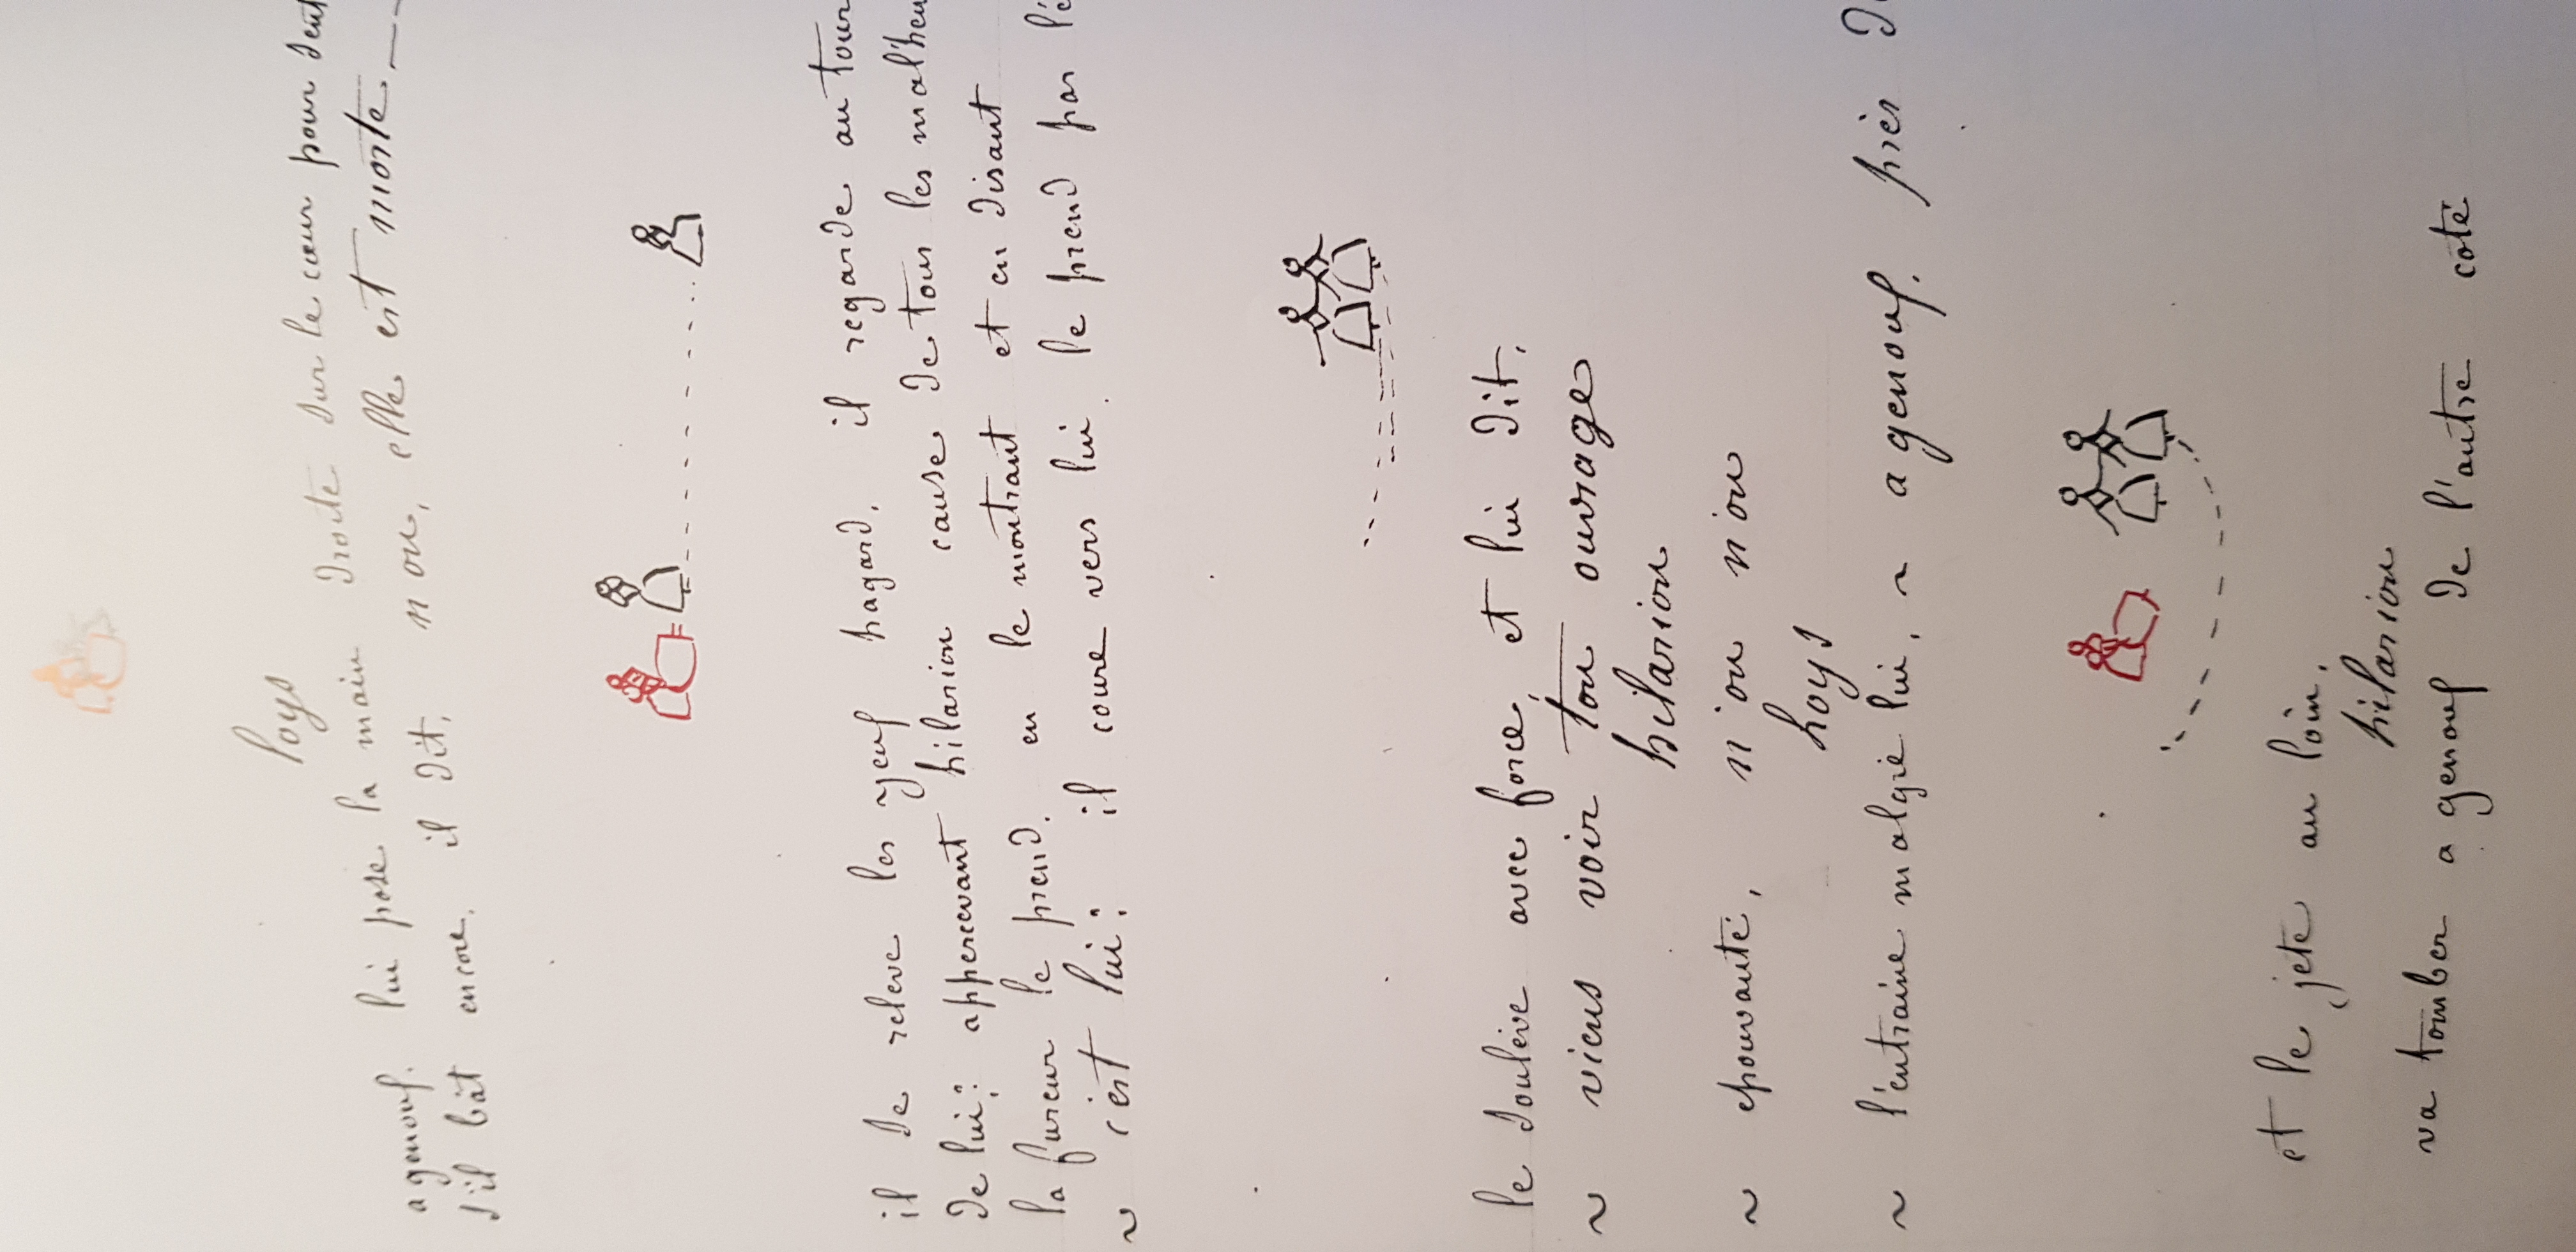 loys
a genoux. lui pose la main droite sur le cœur pour sent
s'il bât encore, il dit, non, elle est morte
il se releve les yeux hagard, il regarde au tour
de lui: appercevant hilarion cause de tous les malheu
la fureur le prend, en le montrant et en disant
~ c'est lui: il coure vers lui, le prend par l'é
le soulève avec force, et lui dit,
~ viens voir ton ouvrage
hilarion
~ epouvanté, n'on n'on
Loys
~ l'entraine malgré lui, ~ a genoux, près de
et le jete au loin,
hilarion
va tomber a genoux de l'autre coté